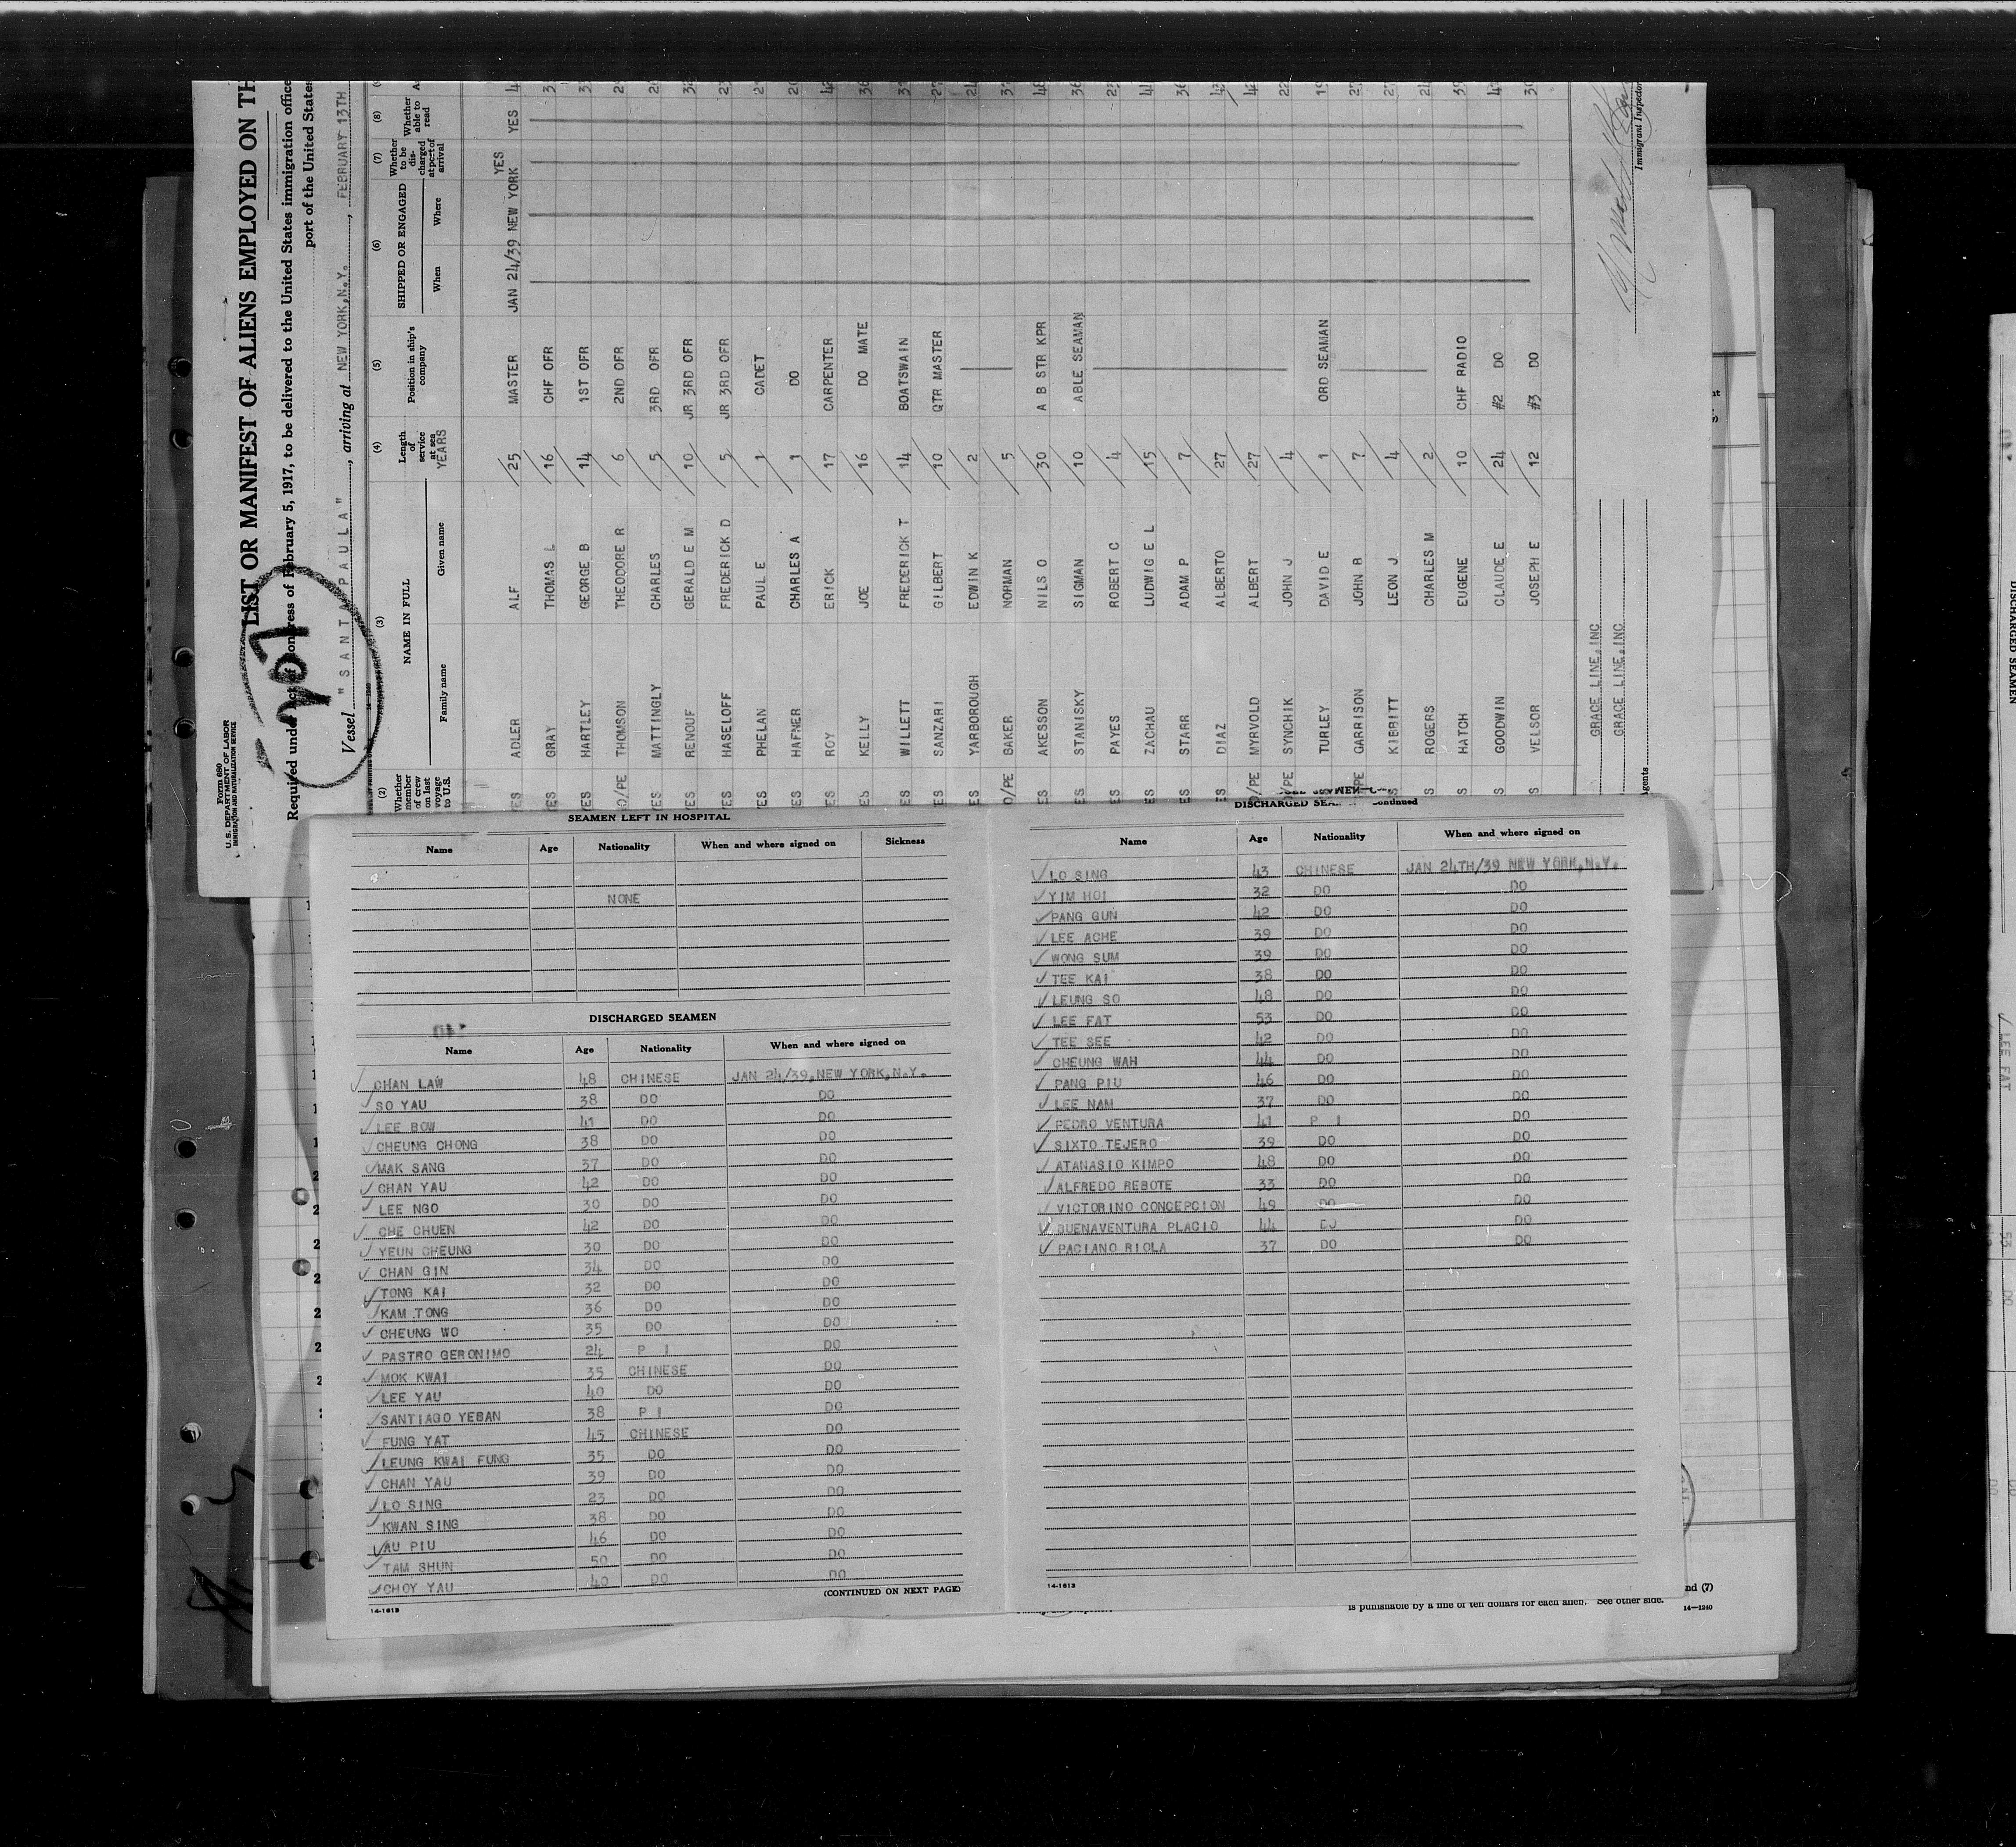 Form 680
U. S. DEPARTMENT OF LABOR
IMMIGRATION AND NATURALIZATION SERVICE
LIST OR MANIFEST OF ALIENS EMPLOYED ON TH
Required under Act of Congress of February 5, 1917, to be delivered to the United States immigration office
port of the United States
Vessel "SANTA PAULA", arriving at NEW YORK,N.Y., FEBRUARY 13TH
(2) (3) (4) (5) (6) (7) (8)
Whether member of crew on last voyage to U.S. NAME IN FULL Family name Given name Length of service at sea YEARS Position in ship's company SHIPPED OR ENGAGED When Where Whether to be discharged at port of arrival Whether able to read
ES ADLER ALF 25 MASTER JAN 24/39 NEW YORK YES YES
ES GRAY THOMAS L 16 CHF OFR
YES HARTLEY GEORGE B 14 1ST OFR
O/PE THOMSON THEODORE R 6 2ND OFR
YES MATTINGLY CHARLES 5 3RD OFR
ES RENOUF GERALD E M 10 JR 3RD OFR
ES HASELOFF FREDERICK D 5 JR 3RD OFR
YES PHELAN PAUL E 1 CADET
ES HAFNER CHARLES A 1 DO
ES ROY ERICK 17 CARPENTER
ES KELLY JOE 16 DO MATE
ES WILLETT FREDERICK T 14 BOATSWAIN
ES SANZARI GILBERT 10 QTR MASTER
ES YARBOROUGH EDWIN K 2
O/PE BAKER NORMAN 5
ES AKESSON NILS O 30 A B STR KPR
ES STANISKY SIGMAN 10 ABLE SEAMAN
ES PAYES ROBERT C 4
ES ZACHAU LUDWIG E L 15
ES STARR ADAM P 7
ES DIAZ ALBERTO 27
O/PE MYRVOLD ALBERT 27
O/PE SYNCHIK JOHN J 4
ES TURLEY DAVID E 1 ORD SEAMAN
PE GARRISON JOHN B 7
S KIBBITT LEON J 4
S ROGERS CHARLES M 2
S HATCH EUGENE 10 CHF RADIO
S GOODWIN CLAUDE E 24 #2 DO
S VELSOR JOSEPH E 12 #3 DO
GRACE LINE,INC
GRACE LINE,INC
Agents
Immigrant Inspector
SEAMEN LEFT IN HOSPITAL
Name Age Nationality When and where signed on Sickness
NONE
DISCHARGED SEAMEN
Name Age Nationality When and where signed on
CHAN LAW 48 CHINESE JAN 24/39,NEW YORK,N.Y.
SO YAU 38 DO DO
LEE BOW 41 DO DO
CHEUNG CHONG 38 DO DO
MAK SANG 37 DO DO
CHAN YAU 42 DO DO
LEE NGO 30 DO DO
CHE CHUEN 42 DO DO
YEUN CHEUNG 30 DO DO
CHAN GIN 34 DO DO
TONG KAI 32 DO DO
KAM TONG 36 DO DO
CHEUNG WO 35 DO DO
PASTRO GERONIMO 24 P I DO
MOK KWAI 35 CHINESE DO
LEE YAU 40 DO DO
SANTIAGO YEBAN 38 P I DO
FUNG YAT 45 CHINESE DO
LEUNG KWAI FUNG 35 DO DO
CHAN YAU 39 DO DO
LO SING 23 DO DO
KWAN SING 38 DO DO
AU PIU 46 DO DO
TAM SHUN 50 DO DO
CHOY YAU 40 DO DO
(CONTINUED ON NEXT PAGE)
14-1613
DISCHARGED SEA Continued
Name Age Nationality When and where signed on
LO SING 43 CHINESE JAN 24TH/39 NEW YORK,N.Y.
YIM HOI 32 DO DO
PANG GUN 42 DO DO
LEE ACHE 39 DO DO
WONG SUM 39 DO DO
TEE KAI 38 DO DO
LEUNG SO 48 DO DO
LEE FAT 53 DO DO
TEE SEE 42 DO DO
CHEUNG WAH 44 DO DO
PANG PIU 46 DO DO
LEE NAM 37 DO DO
PEDRO VENTURA 41 P I DO
SIXTO TEJERO 39 DO DO
ATANASIO KIMPO 48 DO DO
ALFREDO REBOTE 33 DO DO
VICTORINO CONCEPCION 49 DO DO
BUENAVENTURA PLACIO 44 DO DO
PACIANO RIOLA 37 DO DO
14-1613
nd (7)
is punishable by a fine of ten dollars for each alien. See other side.
14—1240
DISCHARGED SEAMEN
LEE FAT
53
DO
DO